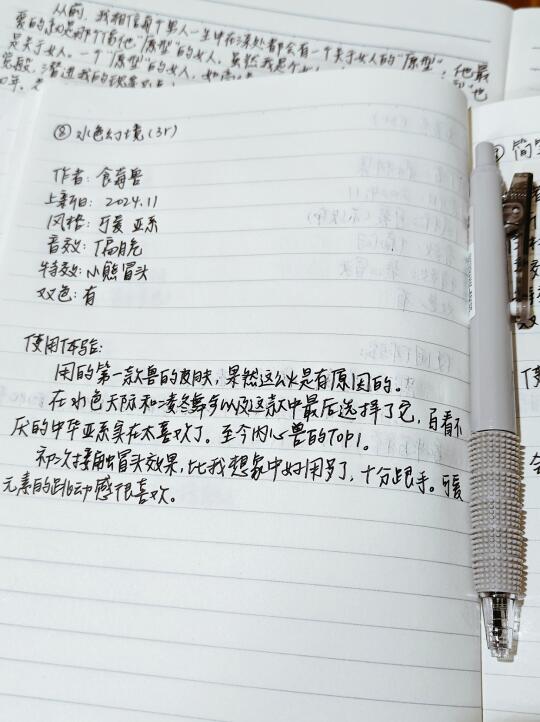 从前，我相信每个男人一生中在深处都会有一个关于女人的“原型”，他最
爱的就是那个像他“原型”的女人。虽然我是个
是关于女人，一个“原型”的女人，如
⑧ 水色幻境(3r)
作者：食莓兽
上新日：2024.11
风格：可爱 亚系
音效：偏脆
特效：小熊冒头
双色：有
使用体验：
用的第一款兽的皮肤，果然这么火是有原因的。
在水色天际和凌冬舞兮以及这款中最后选择了它，百看不
厌的中华亚系实在太喜欢了。至今内心兽的TOP1。
初次接触冒头效果，比我想象中好用多了，十分跟手。可爱
元素的跳动感很喜欢。